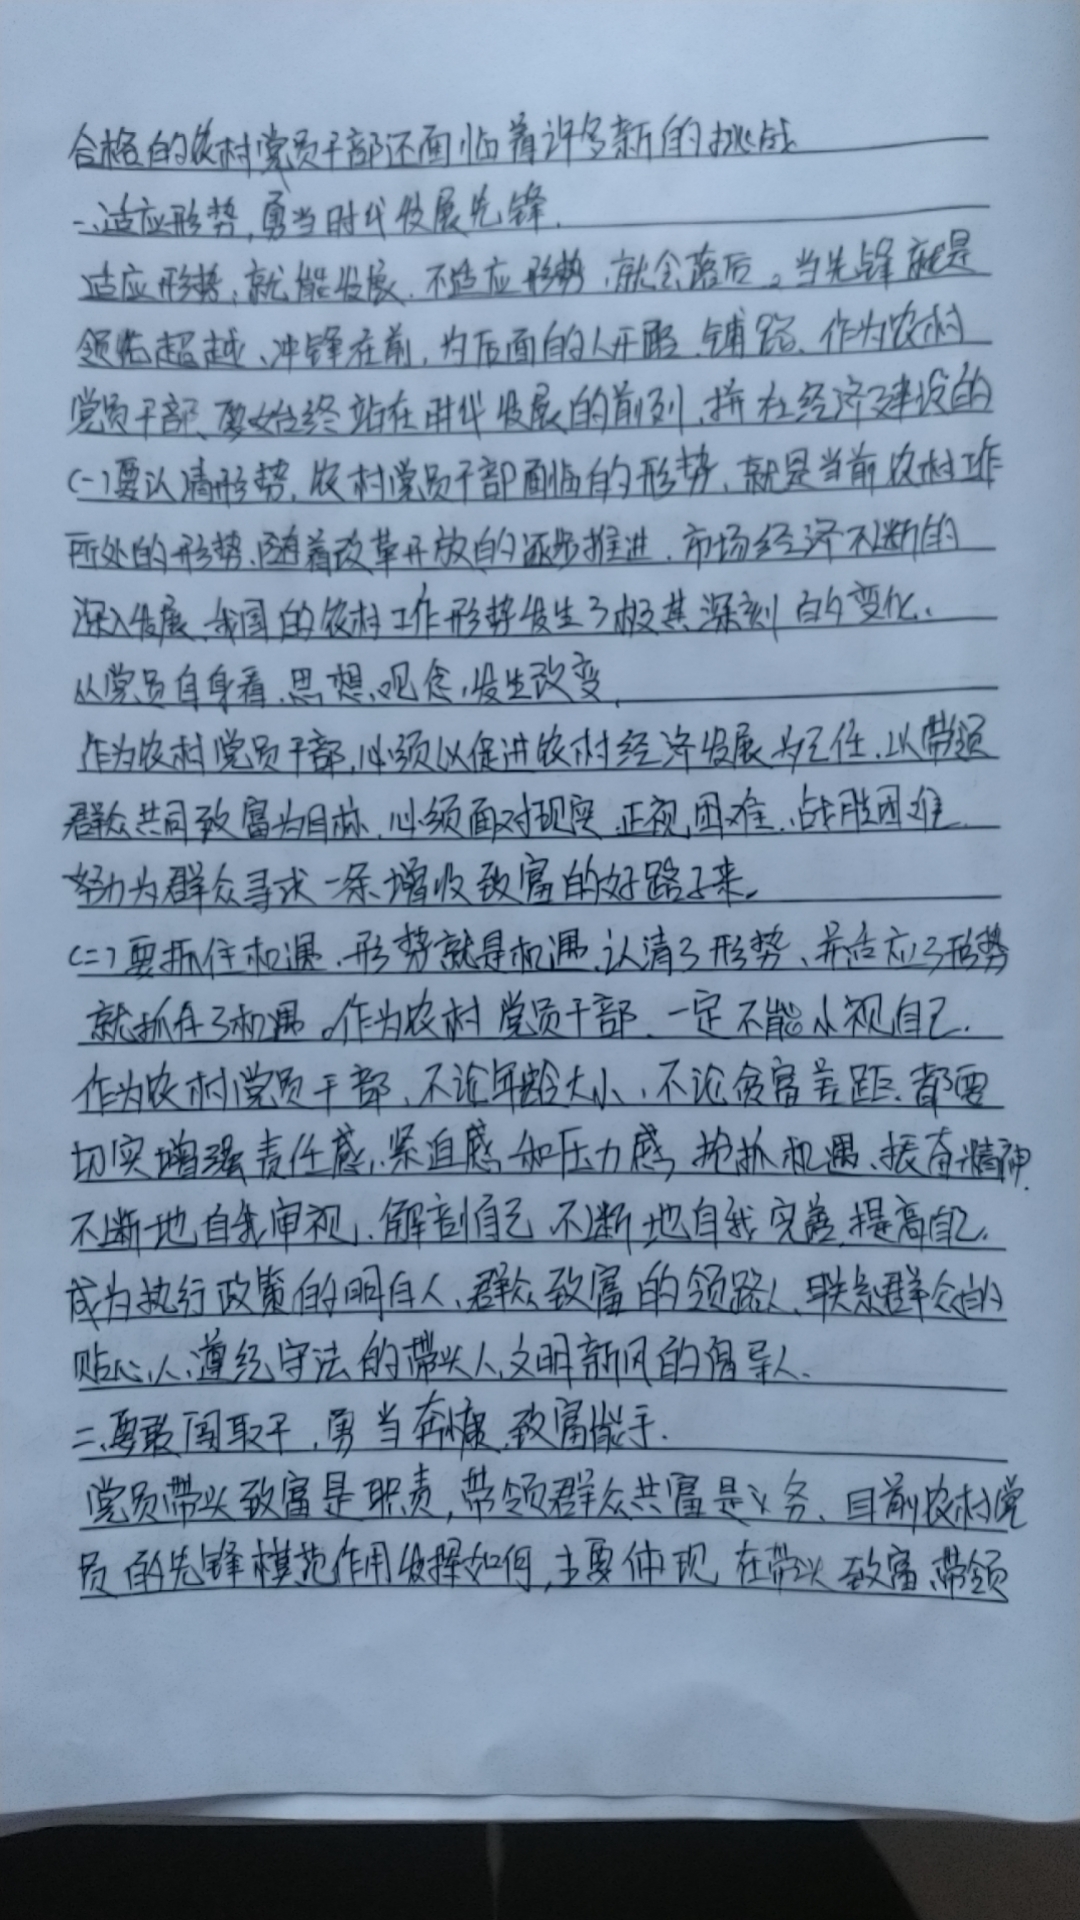 合格的农村党员干部还面临着许多新的挑战
一、适应形势，勇当时代发展先锋.
适应形势，就能发展.不适应形势，就会落后。当先锋就是
领先超越、冲锋在前，为后面的人开路.铺路、作为农村
党员干部、要始终站在时代发展的前列，拼在经济建设的
(一)要认清形势，农村党员干部面临的形势、就是当前农村工作
所处的形势.随着改革开放的逐步推进.市场经济不断的
深入发展、我国的农村工作形势发生了极其深刻的变化.
从党员自身看.思想、观念，发生改变，
作为农村党员干部，必须以促进农村经济发展为己任.以带领
群众共同致富为目标，必须面对现实.正视困难、战胜困难
努力为群众寻求一条增收致富的好路子来。
(二)要抓住机遇.形势就是机遇.认清了形势、并适应了形势
就抓住了机遇。作为农村党员干部.一定不能小视自己.
作为农村党员干部、不论年龄大小、不论贫富差距.都要
切实增强责任感、紧迫感和压力感，抢抓机遇、振奋精神.
不断地自我审视.解剖自己 不断地自我完善.提高自己.
成为执行政策的明白人、群众致富的领路人、联系群众的
贴心人、遵纪守法的带头人、文明新风的倡导人.
二、要敢闯敢干，勇当奔康致富能手.
党员带头致富是职责，带领群众共富是义务、目前农村党
员的先锋模范作用发挥如何，主要体现在带头致富、带领